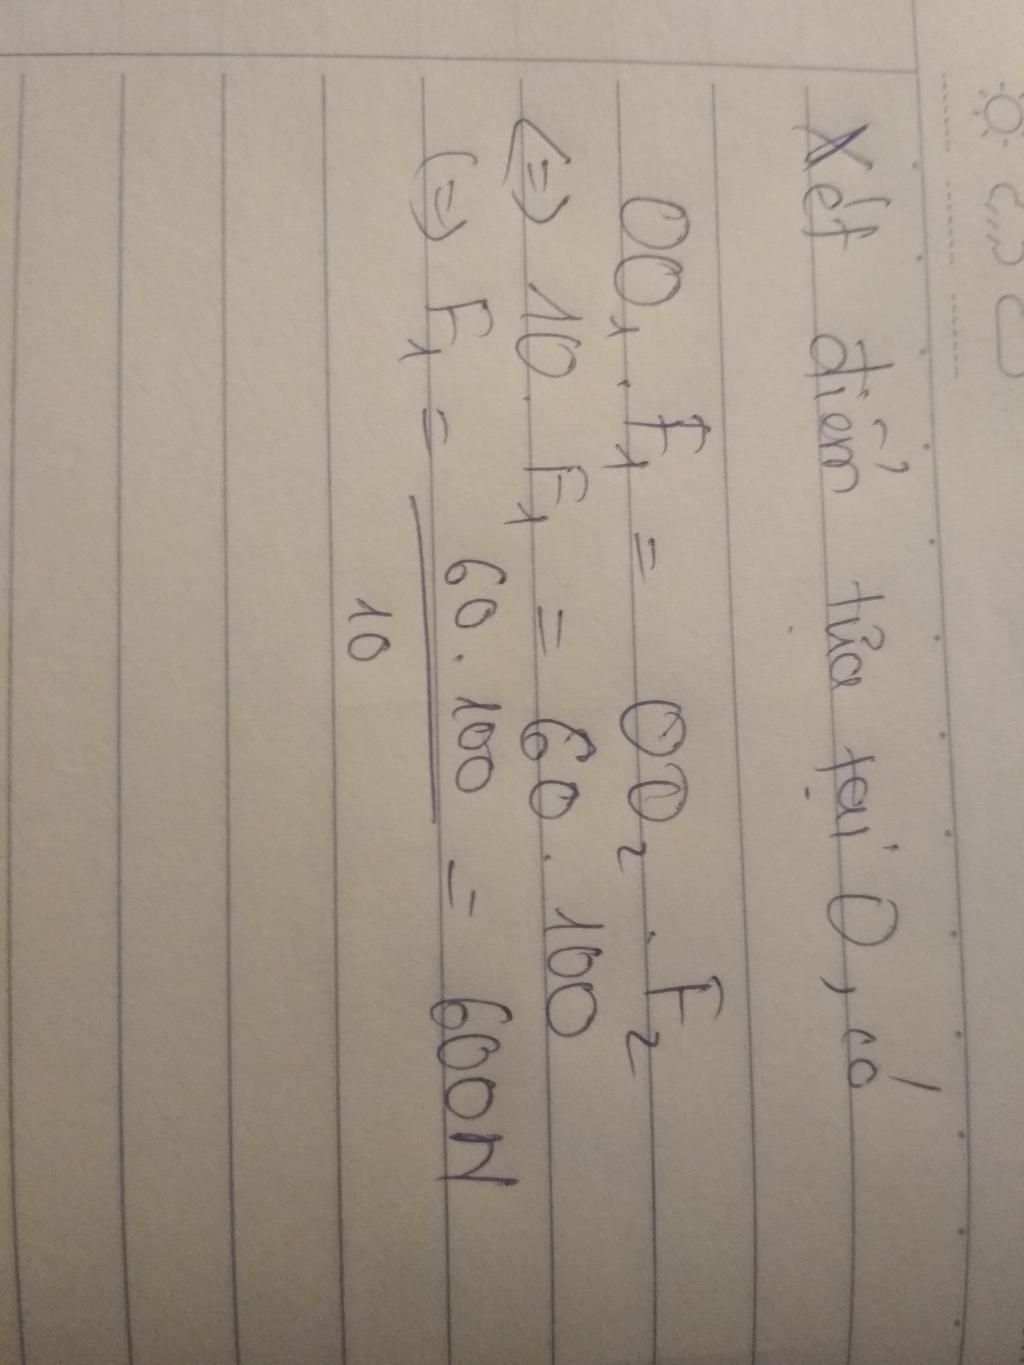 Xét điểm tựa tại O, có
OO₁ . F₁ = OO₂ . F₂
<=> 10 . F₁ = 60 . 100
(=) F₁ = 60 . 100 / 10 = 600N